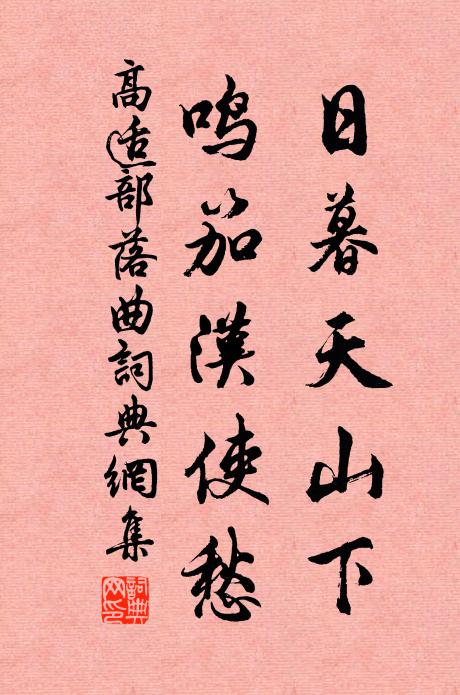 日暮天山下
鳴笳漢使愁
高适部落曲詞典網集
詞典網印